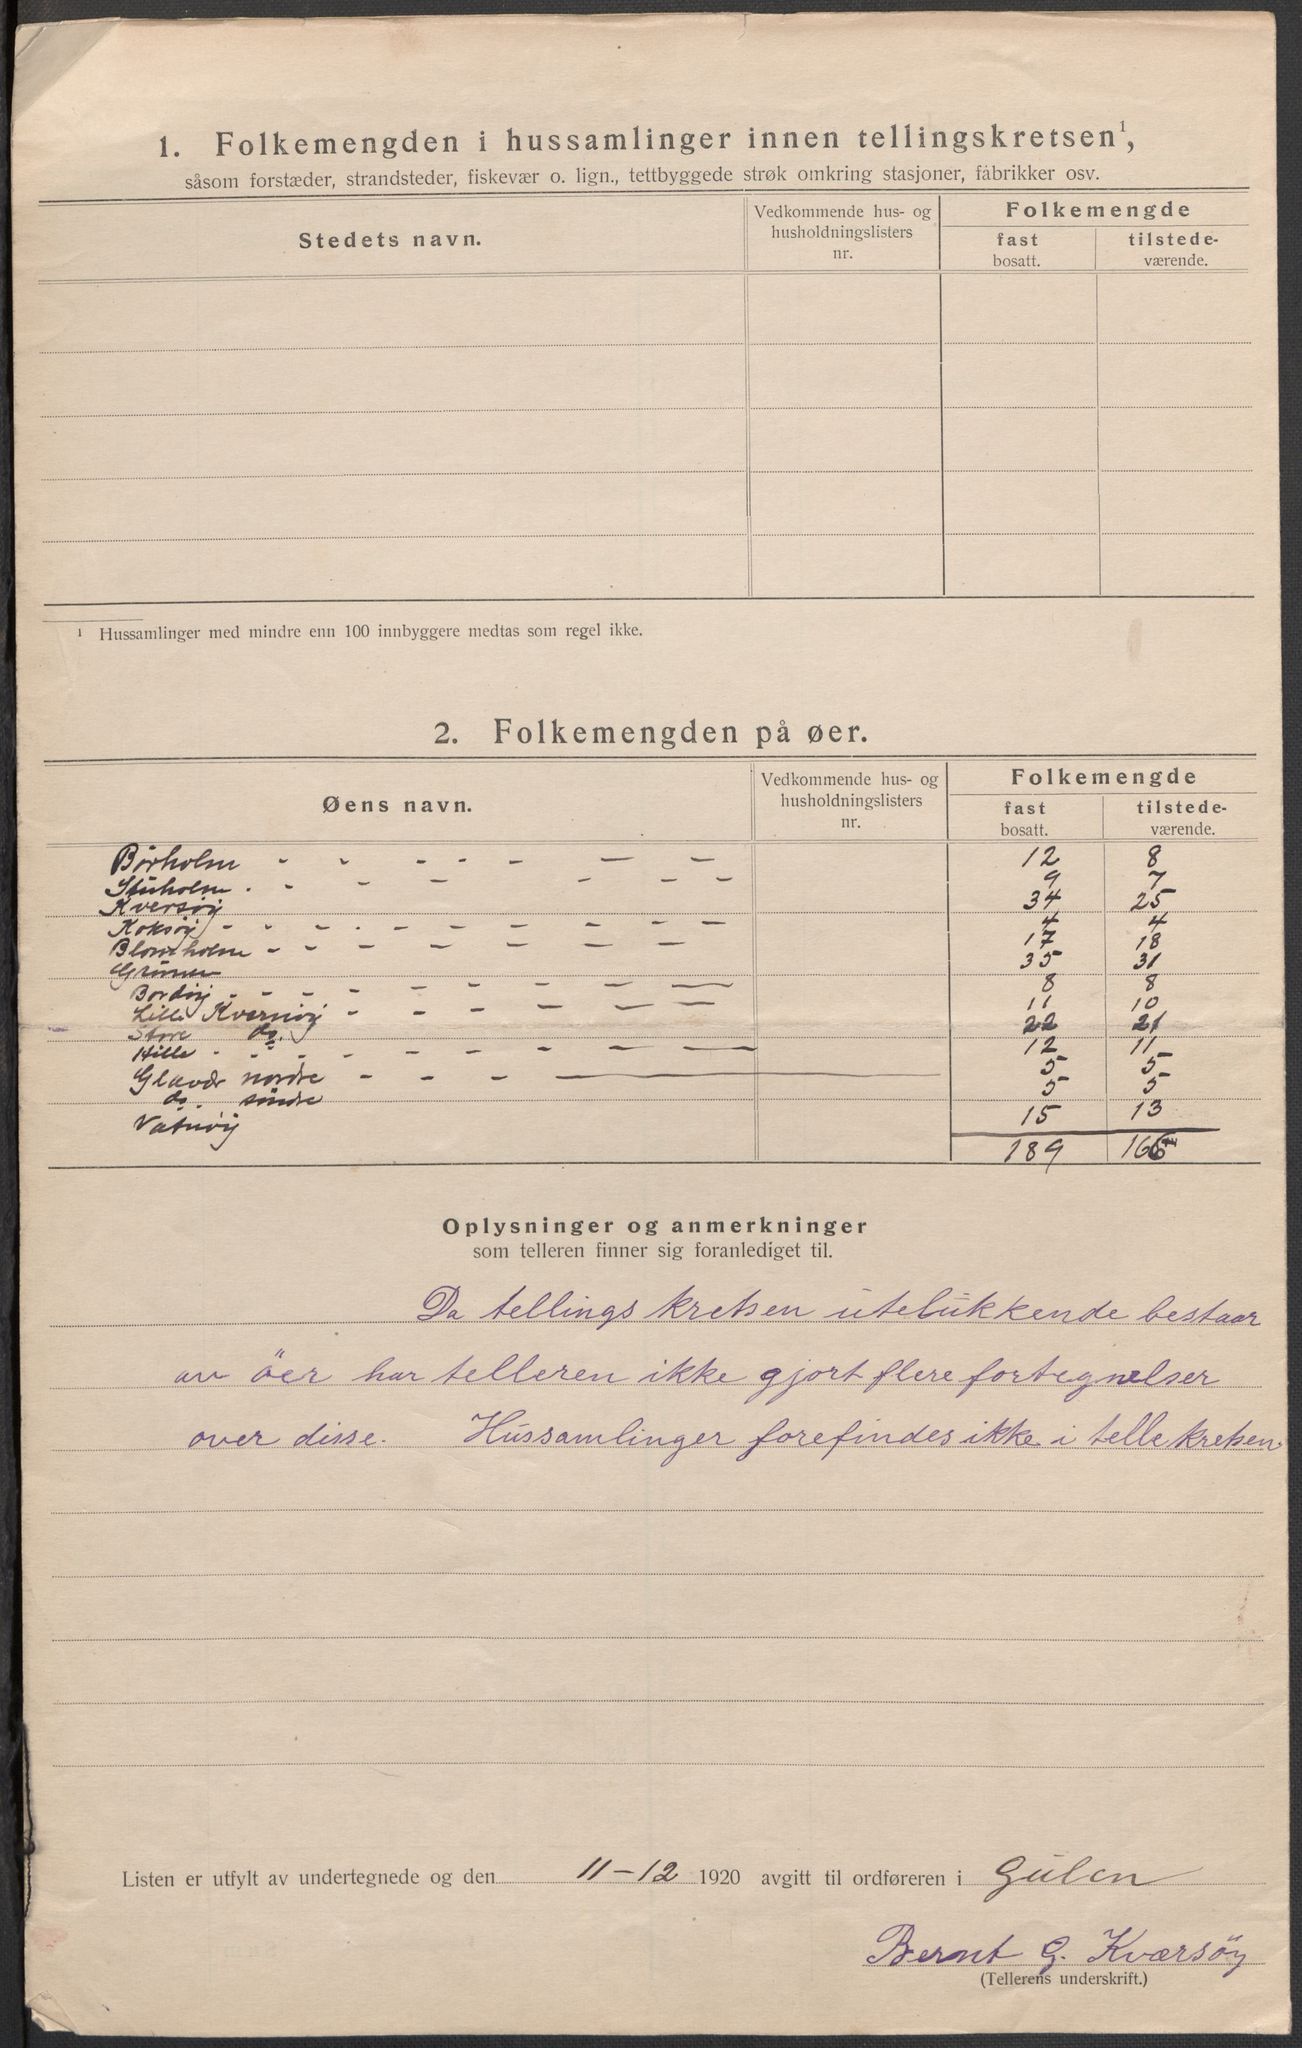 1. Folkemengden i hussamlinger innen tellingskretsen¹,
såsom forstæder, strandsteder, fiskevær o. lign., tettbyggede strøk omkring stasjoner, fabrikker osv.
Stedets navn. Vedkommende hus- og husholdningslisters nr. Folkemengde
fast bosatt. tilstede-værende.
¹ Hussamlinger med mindre enn 100 innbyggere medtas som regel ikke.
2. Folkemengden på øer.
Øens navn. Vedkommende hus- og husholdningslisters nr. Folkemengde
fast bosatt. tilstede-værende.
Børholm - - - - - - - 12 8
9 7
Kversøy 34 25
Koksøy - - - - - - - - - 4 4
holm - - - - - - - 17 18
35 31
Bordøy - - - - - - - - 8 8
Lille Kversøy - - - - - - 11 10
Store do. 22 21
Hille - - - - - - - - - 12 11
Glavær nordre - - - - 5 5
do. søndre 5 5
Vatnøy 15 13
189 166
Oplysninger og anmerkninger
som telleren finner sig foranlediget til.
Da tellings kretsen utelukkende bestaar
av öer har telleren ikke gjort flere fortegnelser
over disse. Hussamlinger forefindes ikke i tellekretsen
Listen er utfylt av undertegnede og den 11-12 1920 avgitt til ordføreren i Gulen
Bernt G. Kværsöy
(Tellerens underskrift.)